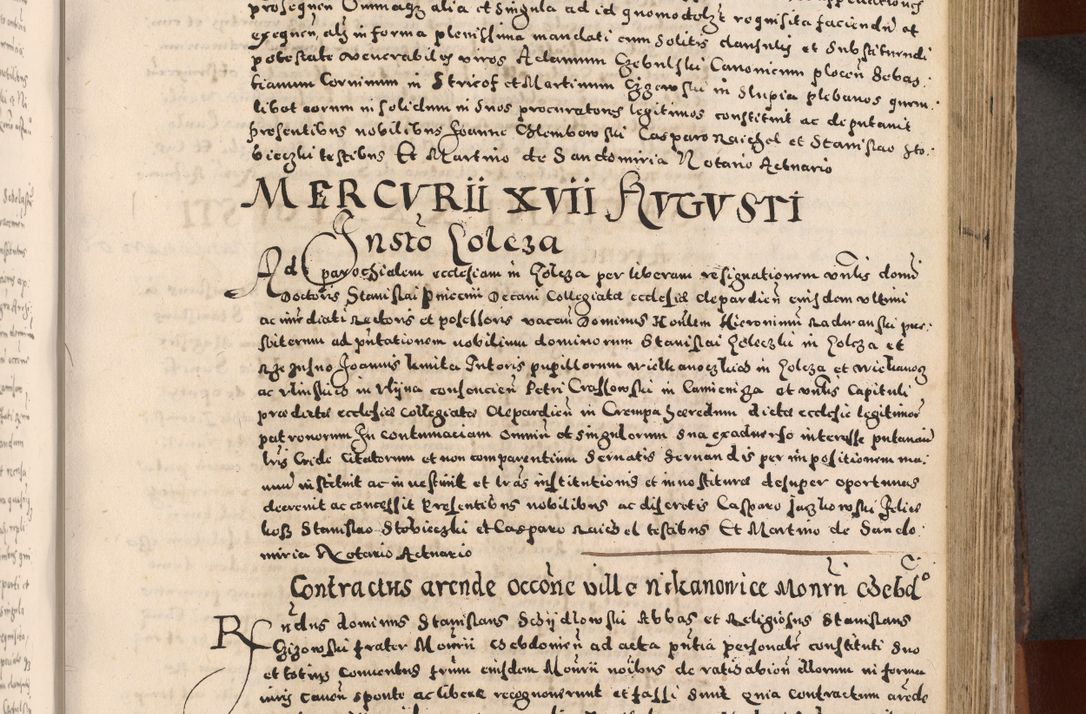 prosequen Omniaqz alia et singula ad id quomodolzt requisita faciendu et
exequen, alz in forma plenissima mandati cum solitis clausulis et substituendi
potestate venerabiles viros Adamum Czebulski Canonicum plocen Sebas-
tianum Corvinum in Stricof et Martinum Czizowski in Slupia plebanos quem-
libet eorum in solidum in suos procuratores legitimos constituit ac deputauit
presentibus nobilibus Joanne Chlembowski Casparo Raichel et Stanislao Sto-
bieczki testibus Et Martino de Sandomiria Notario Actuario
MERCVRII XVII AVGVSTI
Insto Colcza
Ad parochialem ecclesiam in Cholcza per liberam resignationem vnlis domi
Doctoris Stanislai Decani Collegiate ecclesie clepardien eiusdem vltimi
ac imediati rectoris et possessoris vacan Dominus Honlem Hieronimu Radwanski pre-
sbiterum ad putationem nobilium dominorum Stanislai Choleczki in Cholcza et
Joannis kmita Tutoris pupillorum wielkanoczkies in Cholcza et wielkanocz
ac vlinskies in Vlyna consencien Petri Crassowski in Camienicza et vnlis Capituli
predicte ecclesie Collegiate Clepardien in Crempa heredum dicte ecclesie legitimos
patronorum In contumaciam omniu et singulorum sua exaduerso interesse putanciu
lris Cride citatorum et non comparentium seruatis seruandis per impositionem ma-
nuu instituit ac inuestiuit et lras institutionis et inuestiture desuper oportunas
decreuit ac concessit Presentibus nobilibus ac discretis Casparo Jaczkowski Felice
Stanislao Stobieczki et Casparo Raichel testibus Et Martino de Sando-
miria Notario Actuario
Contractus arende occone ville nirkanowice Monrii Czebdo
Rndus dominus Stanislaus Schijdlowski Abbas et Religiosus Stanislaus
Czizowski frater Monrii Czebdomien ad acta pntia personale constituti suo
et totius Conuentus frum eiusdem Monrii noibus de ratihabicion illorum in forma
iuris cauen sponte ac libere recognouerunt et fassi sunt quia contractum arede